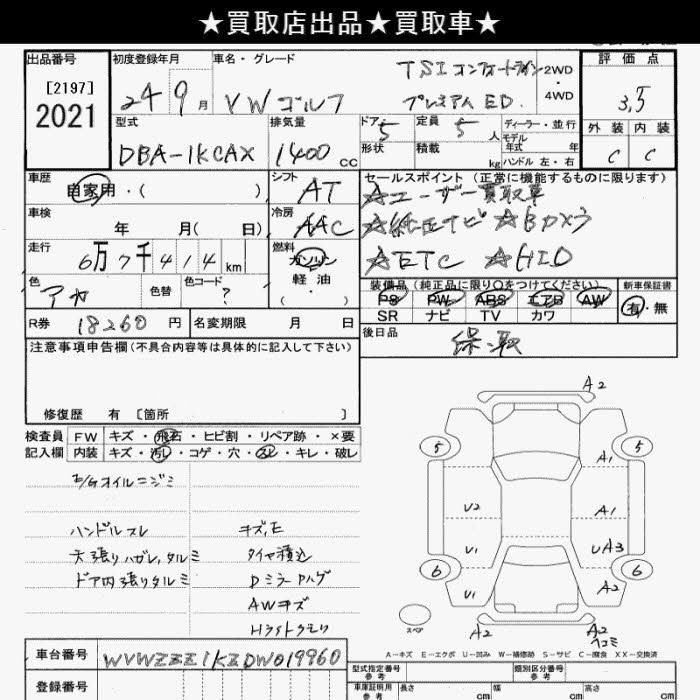 ★買取店出品★買取車★
出品番号
[2197]
2021
初度登録年月
24 9 月
車名・グレード
VW ゴルフ
TSI コンフォートライン
プレミアムED.
2WD
4WD
評価点
3.5
外装 内装
C C
型式
DBA-1KCAX
排気量
1400 cc
ドア 5
形状
定員 5 人
積載 kg
ディーラー・並行
モデル年式 年
ハンドル 左・右
車歴
自家用・( )
シフト
AT
セールスポイント(正常に機能するものに限ります)
☆ユーザー買取車
☆純正ナビ ☆Bカメラ
☆ETC ☆HID
車検
年 月( 日)
冷房
AAC
走行
6万7千414km
燃料
ガソリン
軽油
・( )
色
アカ
色替
色コード
?
装備品(純正品に限り○をつけてください)
PS PW ABS エアB AW
SR ナビ TV カワ
新車保証書
有・無
R券 18260 円
名変期限 月 日
後日品
保・取
注意事項申告欄(不具合内容等は具体的に記入して下さい)
修復歴 有 [箇所 ]
検査員
記入欄
FW キズ・飛石・ヒビ割・リペア跡・×要
内装 キズ・汚レ・コゲ・穴・スレ・キレ・破レ
E/Gオイルニジミ
ハンドルスレ キズ,E
天張りハガレ,タルミ タイヤ積込
ドア内張りタルミ DミラーPハゲ
AWキズ
Hライトクモリ
A2
5 5
A1
U2 A1
U1 UA3
6 6
U1 A2
スペア
A2 A2
ヘコミ
A-キズ E-エクボ U-凹み W-補修跡 S-サビ C-腐食 XX-交換済
車台番号 WVWZZZ1KZDW019960
登録番号
型式指定番号
参考
類別区分番号
参考
車庫証明用
参考
長さ cm
幅 cm
高さ cm